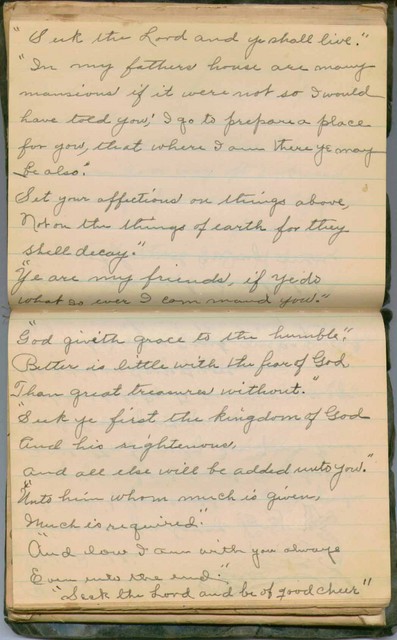 "Seek the Lord and ye shall live."
"In my fathers house are many
mansions if it were not so I would
have told you,' I go to prepare a place
for you, that where I am there ye may
be also."
Set your affections on things above,
Not on the things of earth for they
shall decay."
"Ye are my friends, if ye do
what so ever I com mand you."
"God giveth grace to the humble",
Better is little with the fear of God
Than great treasures without."
"Seek ye first the kingdom of God
And his righteous,
and all else will be added unto you."
"Unto him whom much is given,
Much is required."
"And low I am with you always
Even unto the end."
"Seek the Lord and be of good cheer"